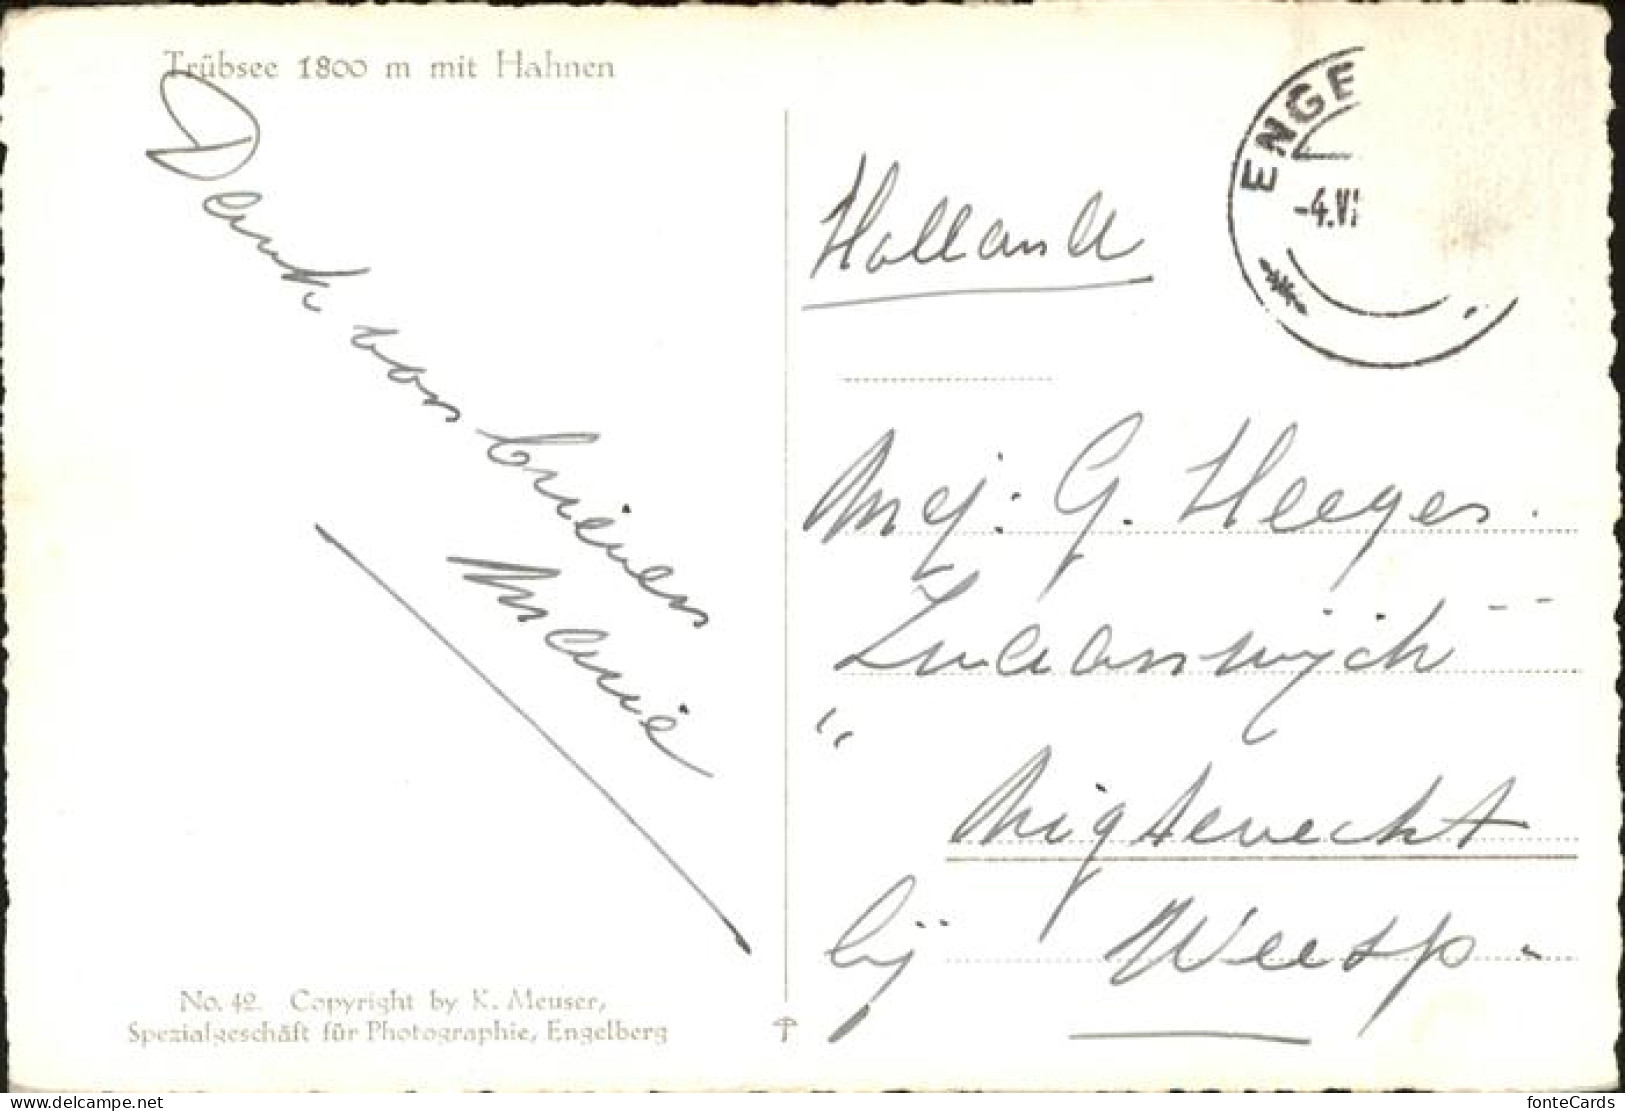 Trübsee 1800 m mit Hahnen
Dank voor brieven
Holland
ENGE
-4.VI
Mej: G. Heeger.
"Zwaanwijck"
Nigtevecht
bij Weesp-
No. 42. Copyright by K. Meuser,
Spezialgeschäft für Photographie, Engelberg
fonteCards
www.delcampe.net